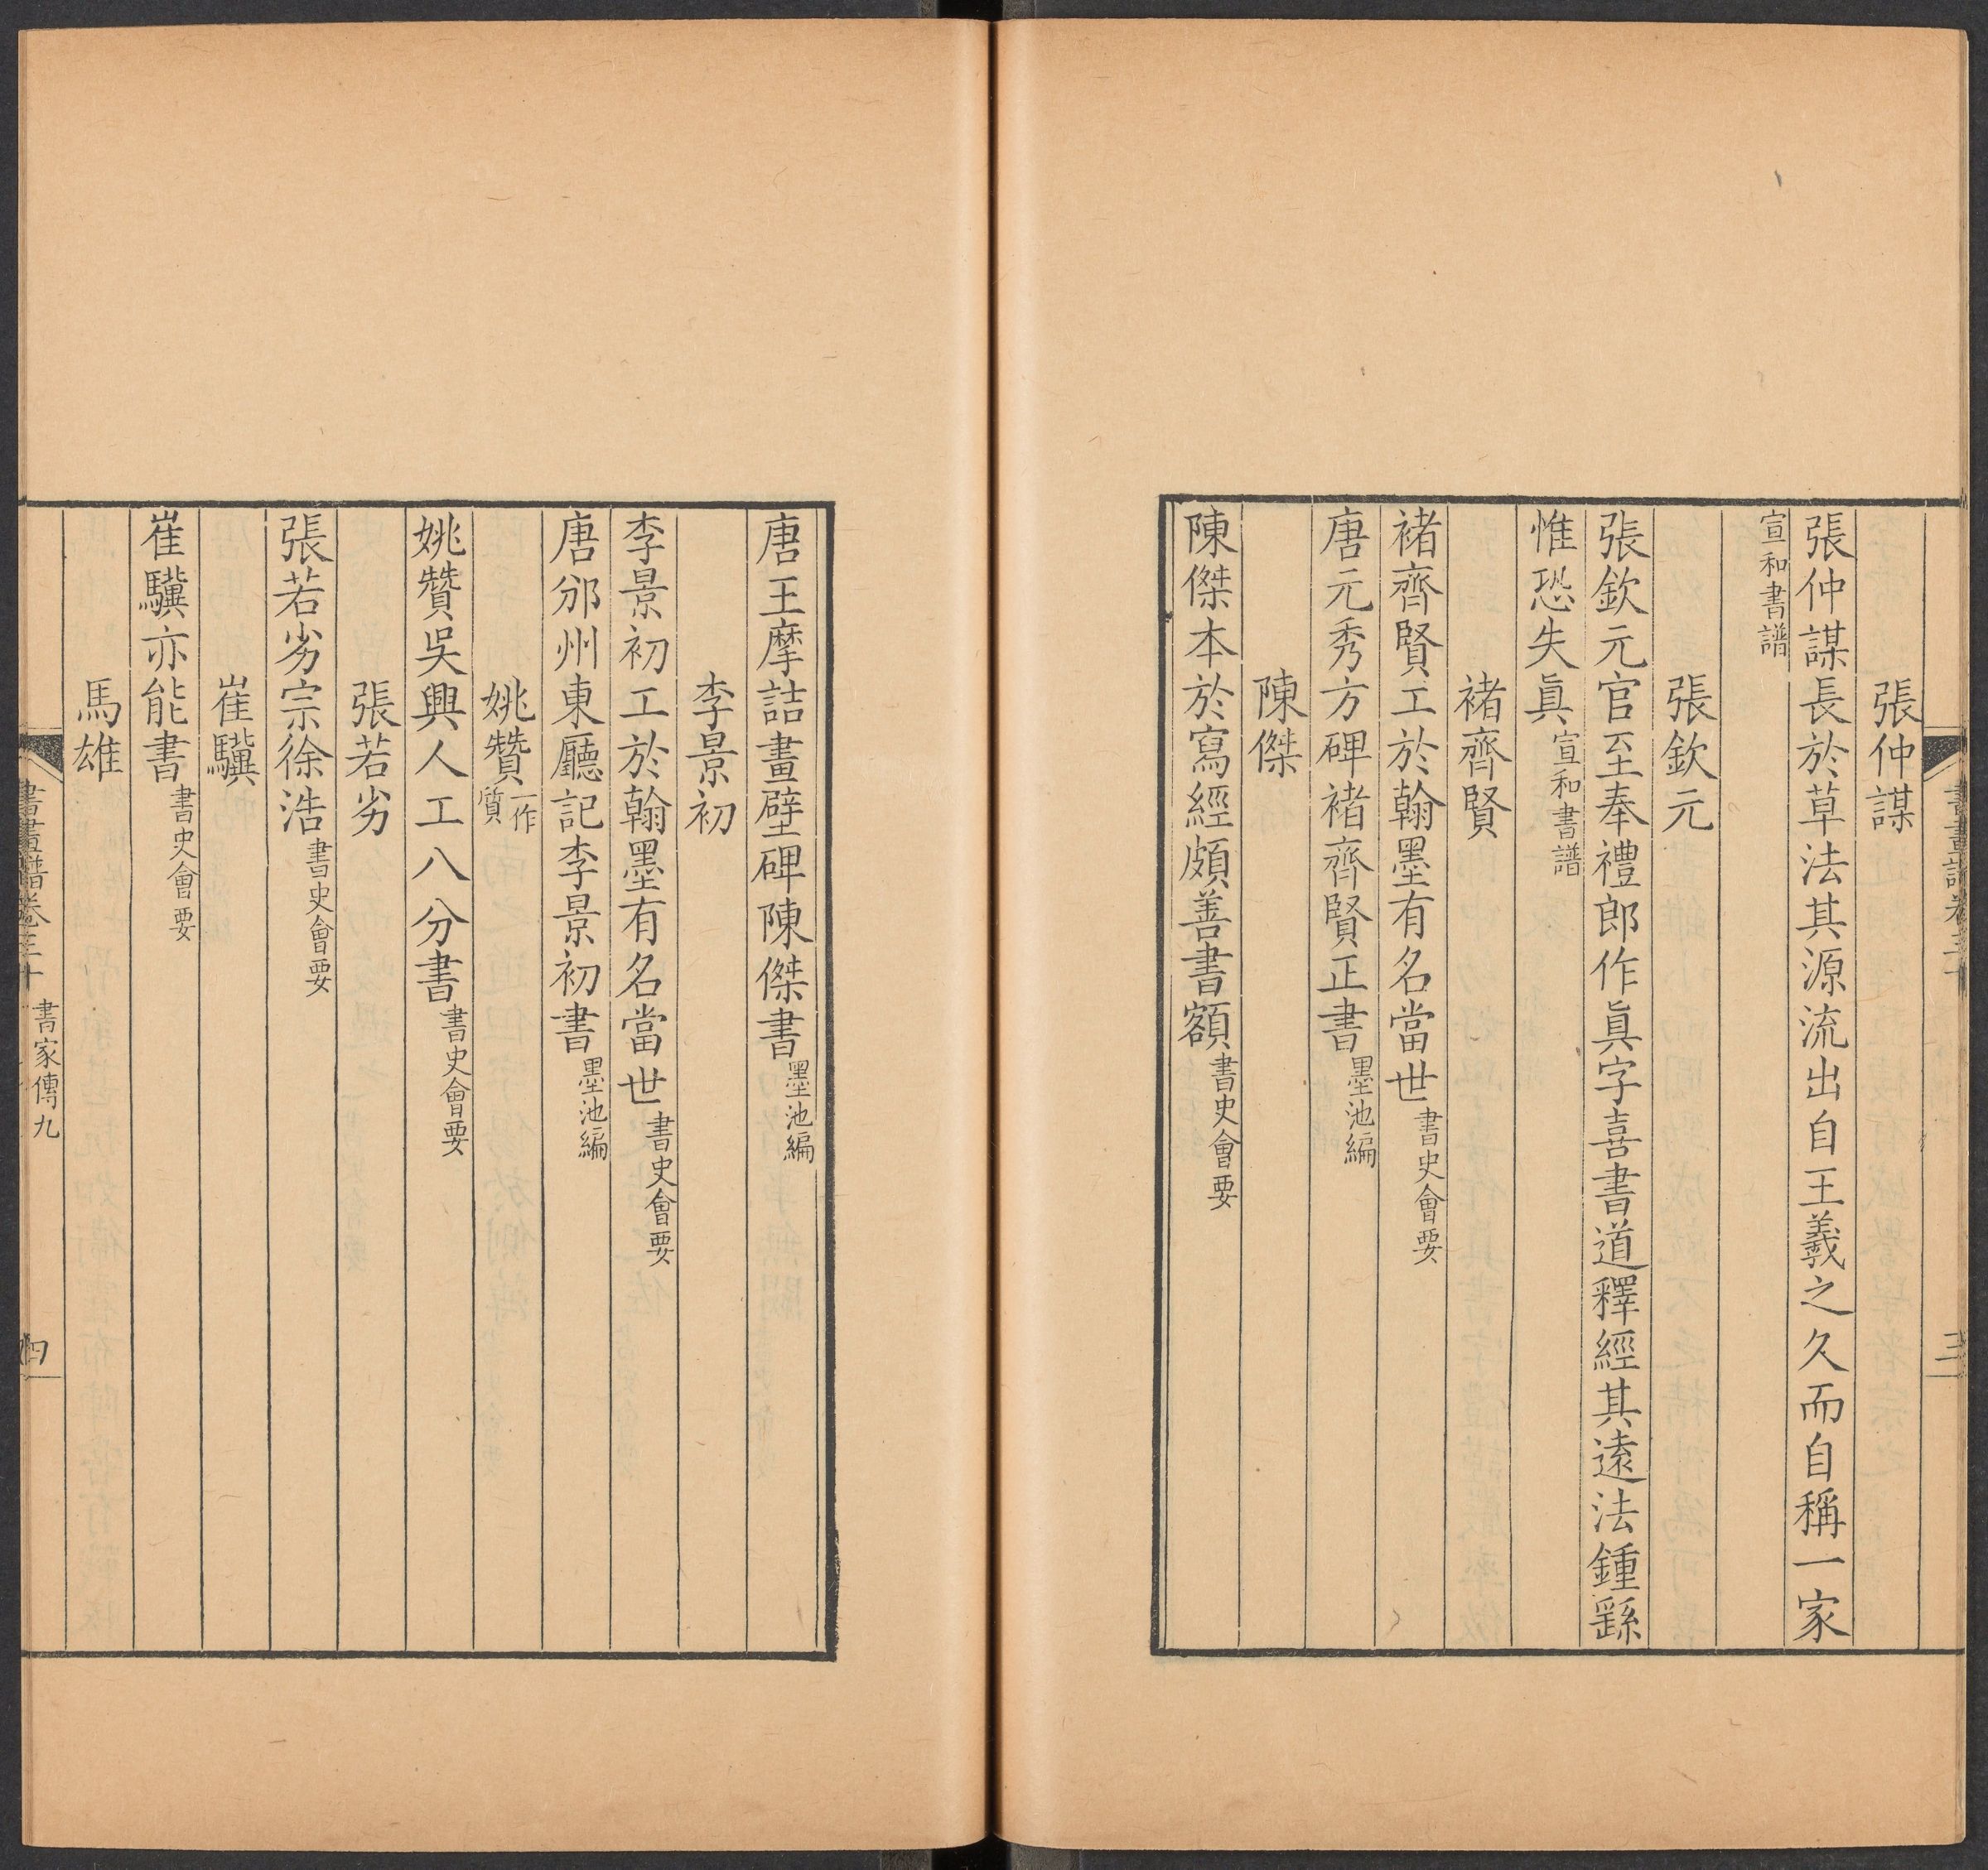 張仲謀
張仲謀長於草法其源流出自王羲之久而自稱一家
宣和書譜
張欽元
張欽元官至奉禮郎作眞字喜書道釋經其遠法鍾繇
惟恐失眞宣和書譜
褚齊賢
褚齊賢工於翰墨有名當世書史會要
唐元秀方碑褚齊賢正書墨池編
陳傑
陳傑本於寫經頗善書額書史會要
唐王摩詰畫壁碑陳傑書墨池編
李景初
李景初工於翰墨有名當世書史會要
唐邠州東廳記李景初書墨池編
姚贊一作質
姚贊吳興人工八分書書史會要
張若劣
張若劣宗徐浩書史會要
崔驥
崔驥亦能書書史會要
馬雄
書畫譜卷三十 書家傳九 四